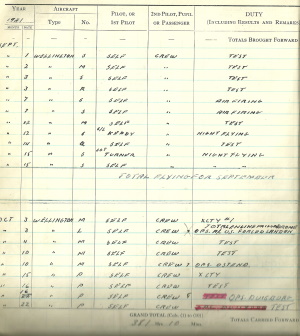 YEAR AIRCRAFT PILOT, OR 1ST PILOT 2ND PILOT, PUPIL OR PASSENGER DUTY (INCLUDING RESULTS AND REMARKS
1941 Type No.
— — — — — TOTALS BROUGHT FORWARD
SEPT.
" 1 WELLINGTON S SELF CREW TEST
" 2 " M SELF " TEST
" 3 " S SELF " TEST
" 3 " R SELF " TEST
" 7 " S SELF " AIR FIRING
" 7 " S SELF " AIR FIRING
" " M SELF " TEST
" 12 " S READY " NIGHT FLYING
" 14 " Q SELF " TEST
" 15 " S TURNER " NIGHT FLYING
" 15 " S SELF " "
TOTAL FLYING FOR SEPTEMBER
OCT 3 WELLINGTON M SELF CREW XCTY #1
" 3 " L SELF CREW OPS. FORCED LANDED
" 9 " M SELF CREW TEST
" 10 " M SELF CREW TEST
" " M SELF CREW OPS OSTEND
" 15 " P SELF CREW XCTY
" 16 " P SELF CREW TEST
" " P SELF CREW OPS DUISBURG
" 22 " P SELF CREW TEST
GRAND TOTAL
381 Hrs. 10 Mins. TOTALS CARRIED FORWARD